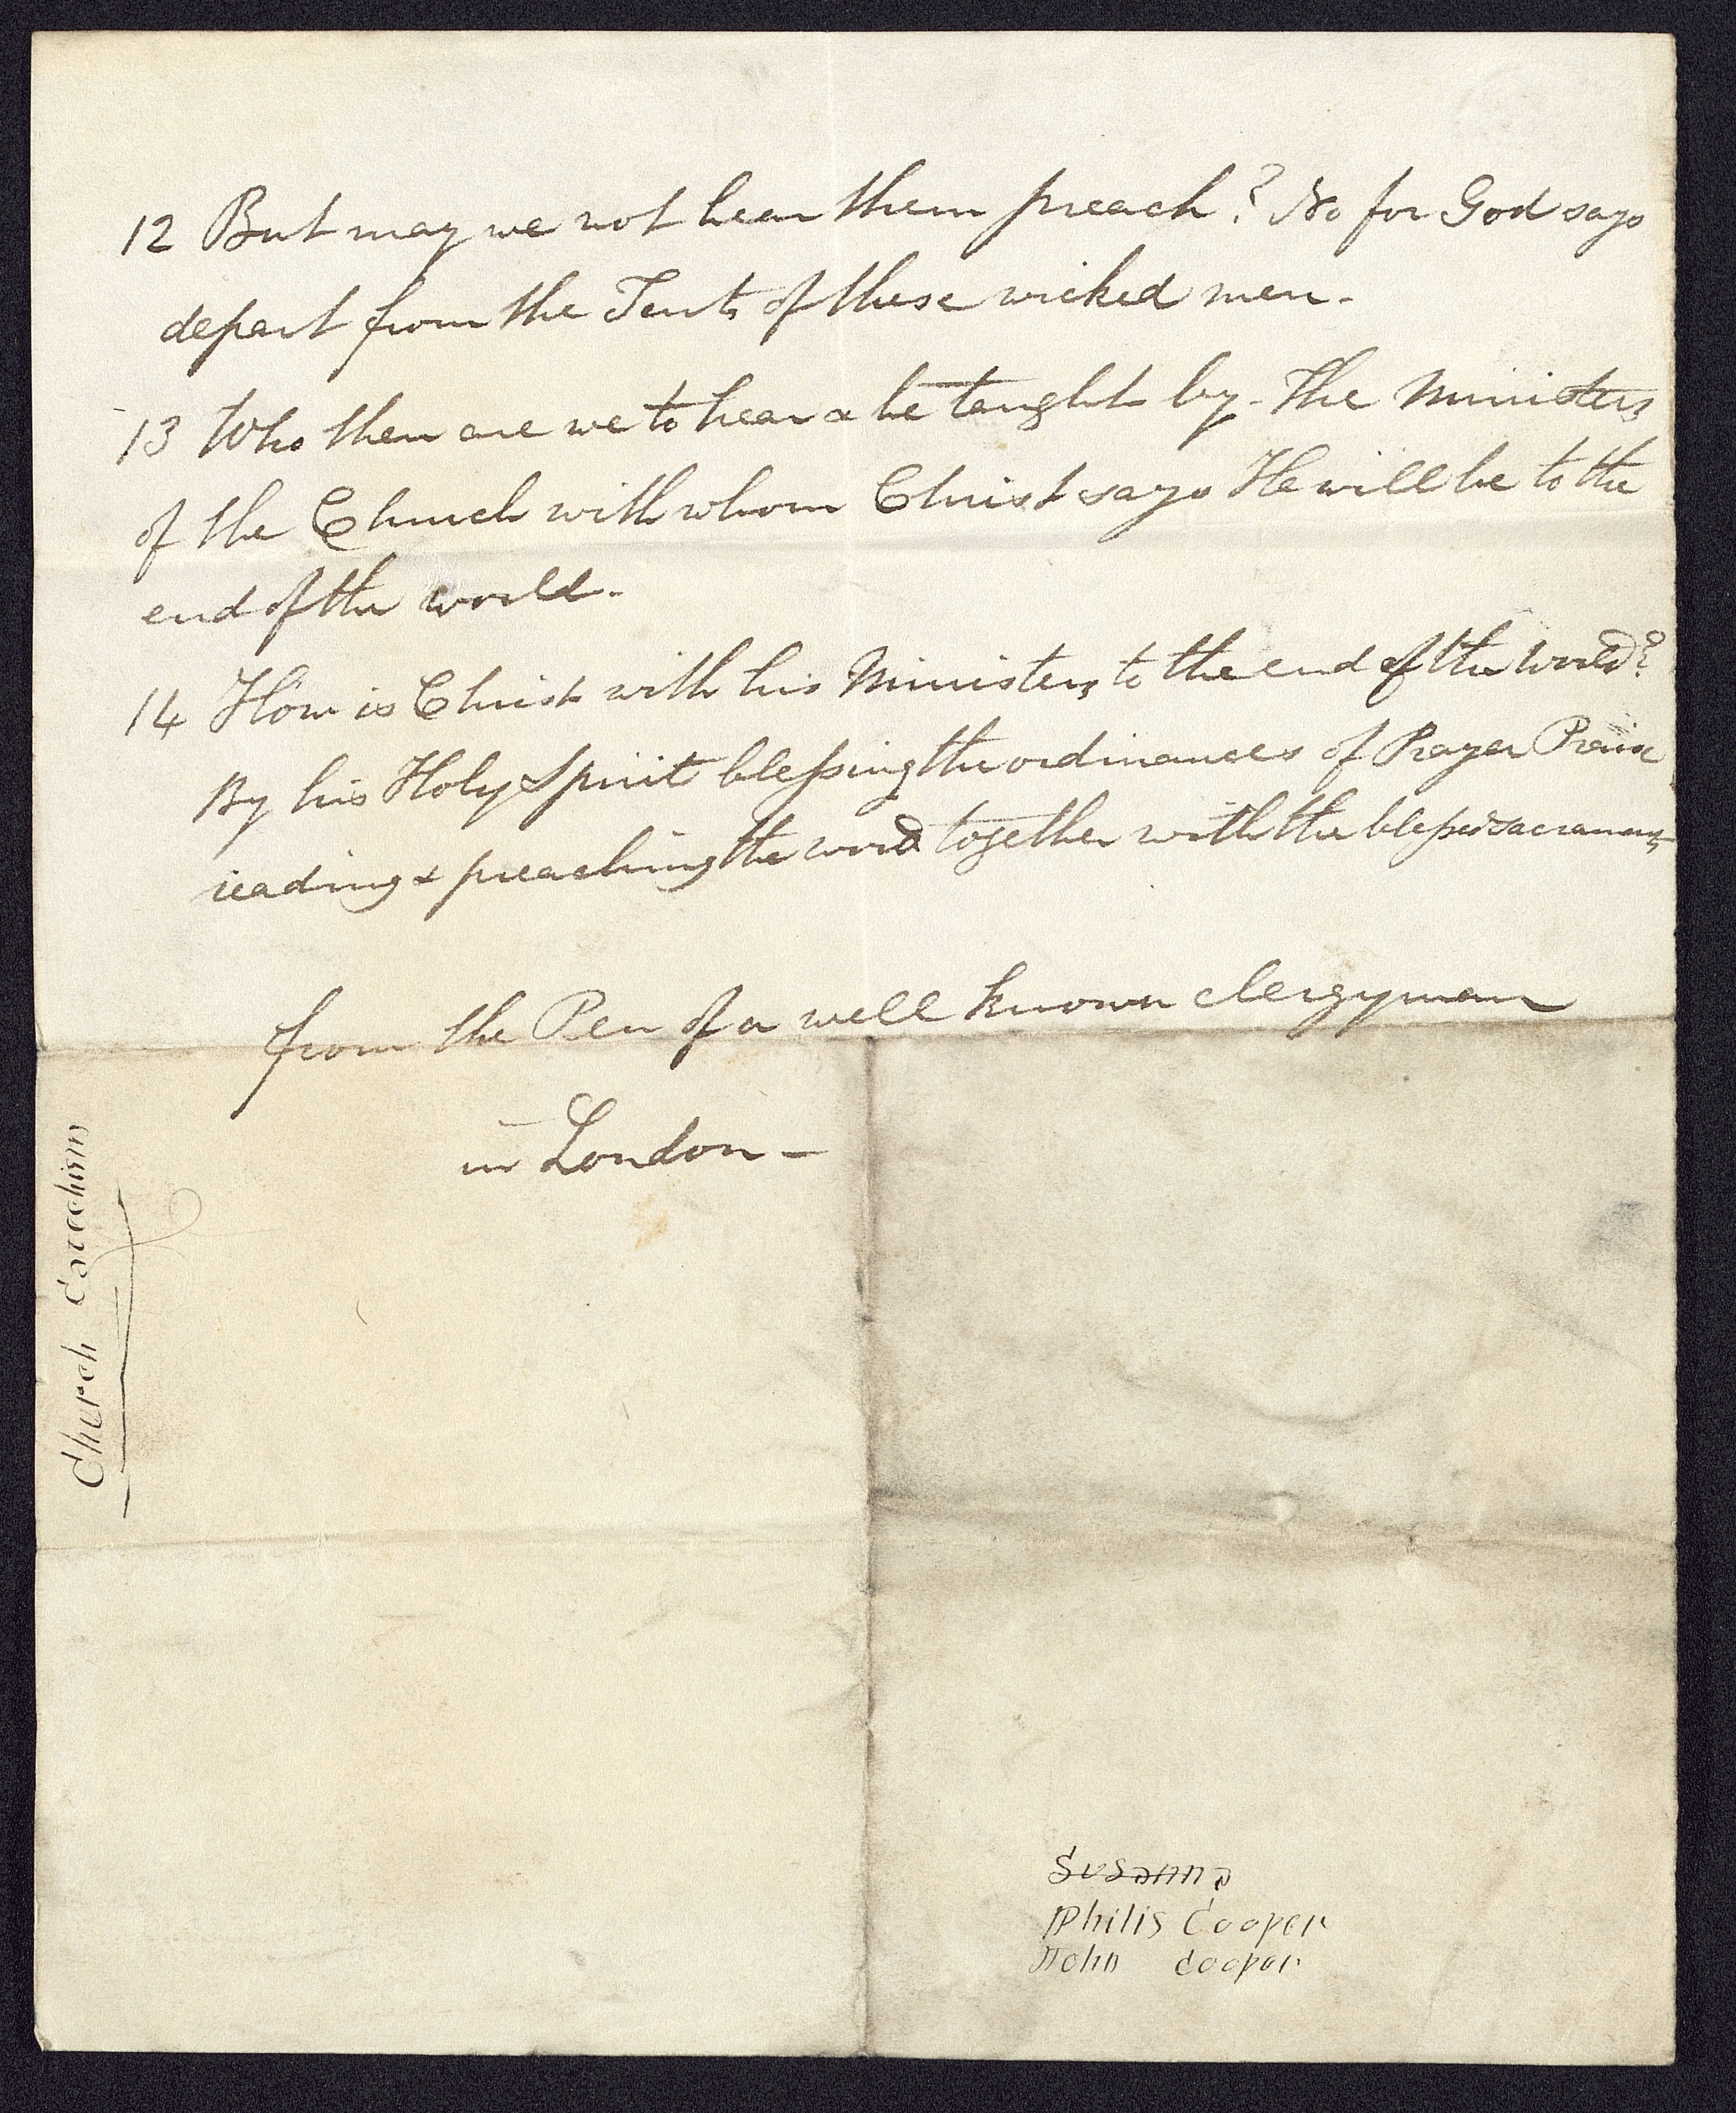 12 But may we not hear them preach? No for God says
depart from the Tents of these wicked men.
13 Who then are we to hear & be taught by - The Ministers
of the Church with whom Christ says He will be to the
end of the world.
14 How is Christ with his Ministers to the end of the World?
By his Holy Spirit blessing the ordinances of Prayer Praise
reading & preaching the word together with the blessed sacraments
from the Pen of a well known clergyman
in London -
Church Catechism
Susanna
Philis Cooper
John Cooper